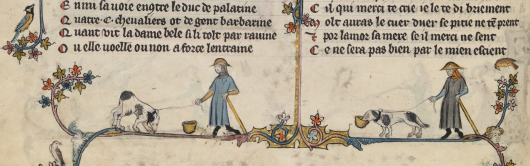 E nmi sa uoie engtre le duc de palatine
Q uatre .c. cheualiers ot de gent barbarine
Q uant uit la dame bele si li tolt par rauine
O u elle uoelle ou non a force lentraine
C il qui merci te crie ie le te di briement
M olt auras le cuer duer se pitie ne te prent
por lamor sa mere se il merci ne sent
C e ne sera pas bien par le mien escient